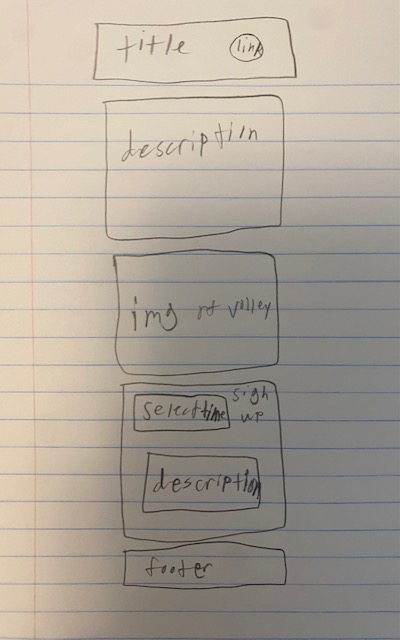 title link
description
img of volley
select time sigh up
description
footer